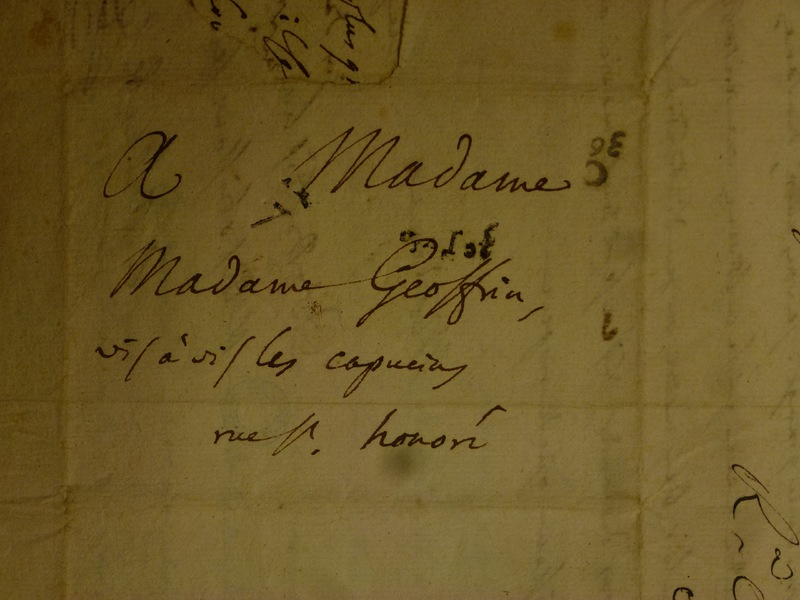 A Madame
Madame Geoffrin,
vis à vis les capucins
rue st. honoré